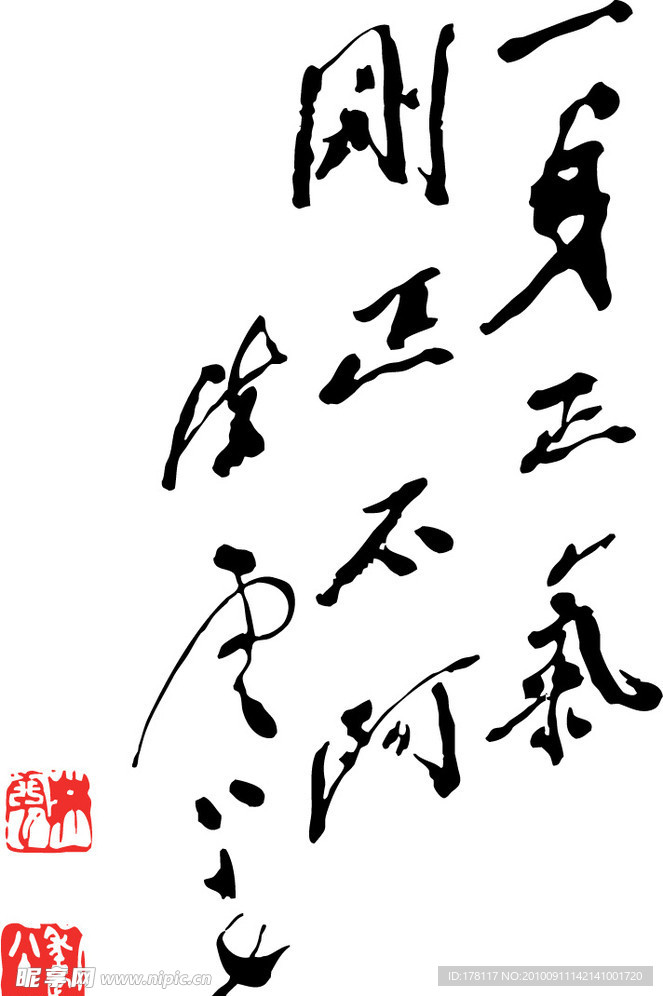 一身正氣
剛正不阿
陈云八十
昵享网 www.nipic.cn
ID:178117 NO:20100911142141001720